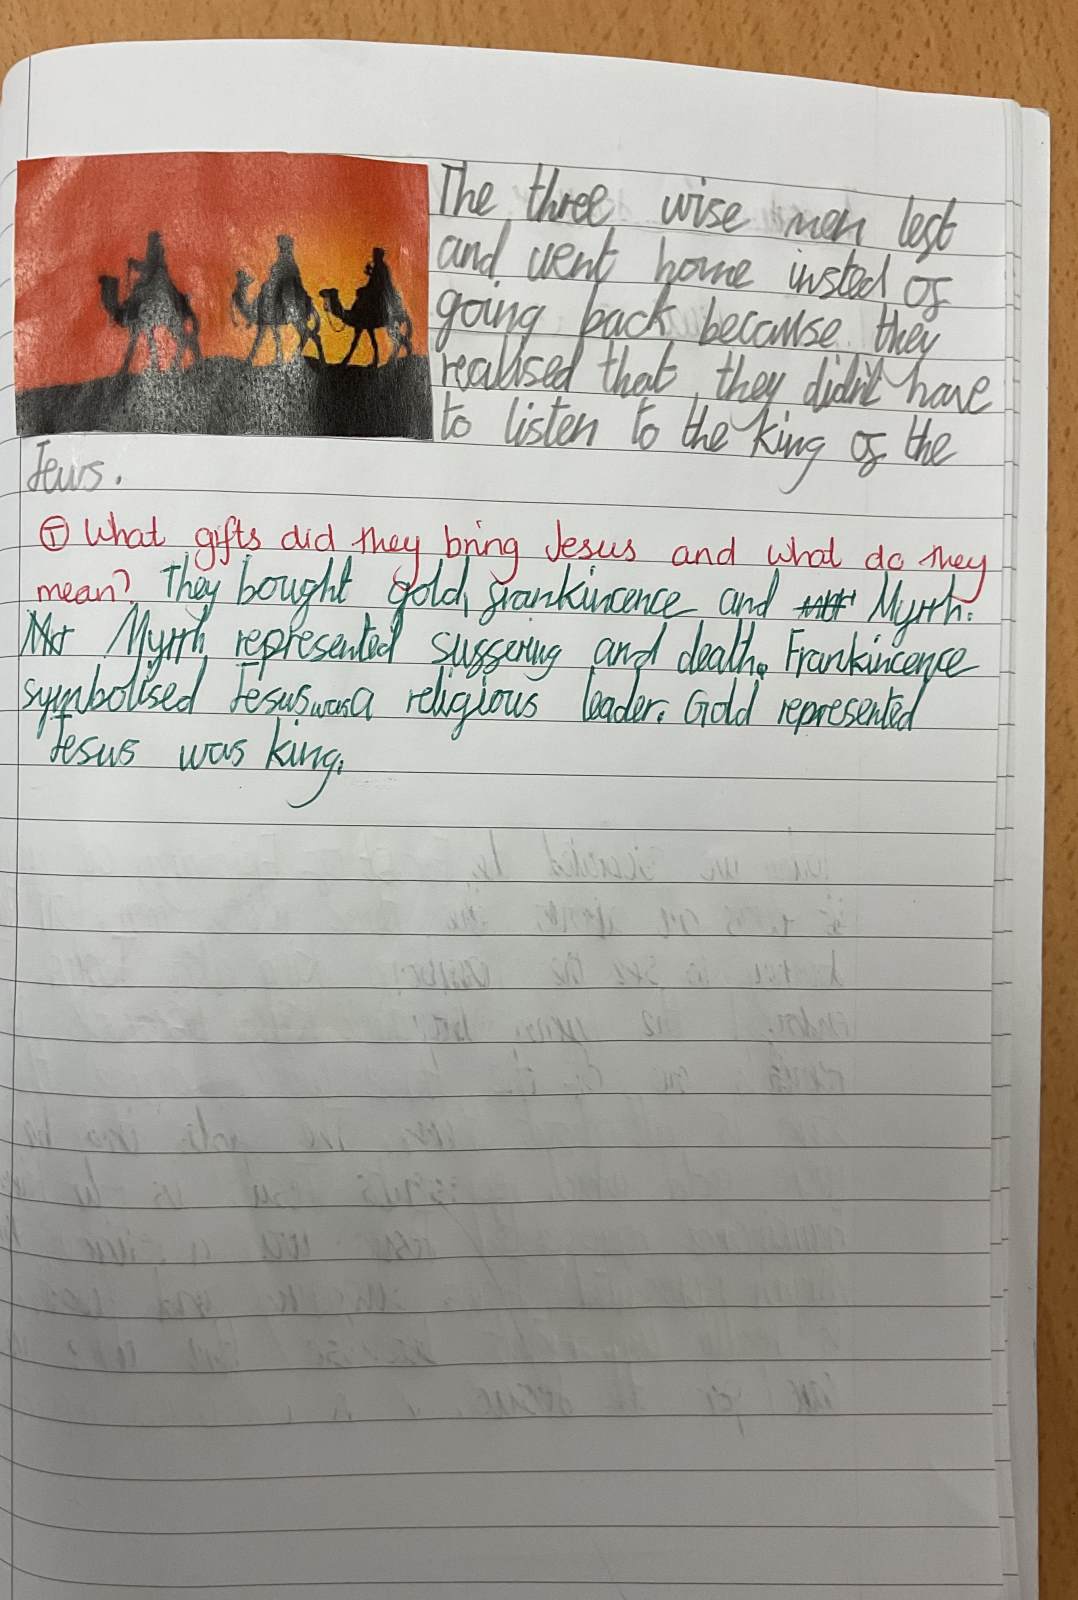 The three wise men left
and went home insted of
going back because they
realised that they didn't have
to listen to the king of the
Jews.
Ⓣ What gifts did they bring Jesus and what do they
mean? They bought gold, frankincence and Myrrh.
Myrrh represented suffering and death. Frankincence
symbolised Jesus was a religious leader. Gold represented
Jesus was king.